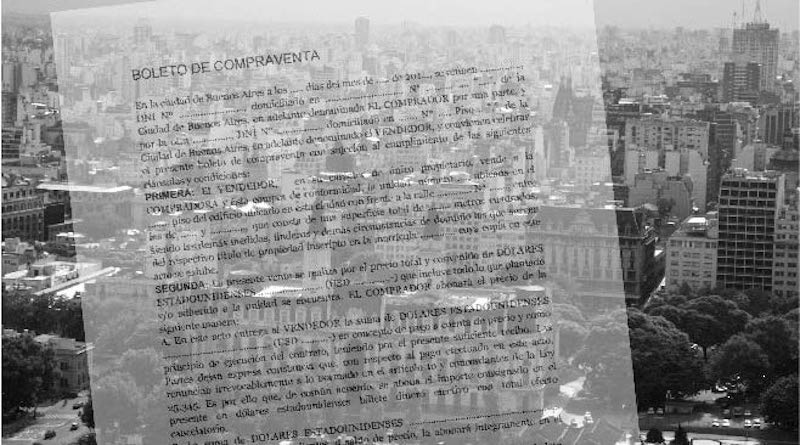 BOLETO DE COMPRAVENTA
En la ciudad de Buenos Aires a los .... días del mes de .... de 201..., se reúnen
DNI Nº ............, domiciliado en ............ Nº ...., de la
Ciudad de Buenos Aires, en adelante denominada EL COMPRADOR por una parte, y
por la otra ............ DNI Nº ............, domiciliado en ............ Nº ...., Piso .... de la
Ciudad de Buenos Aires, en adelante denominado el VENDEDOR, y convienen celebrar
el presente boleto de compraventa con sujeción al cumplimiento de las siguientes
cláusulas y condiciones:
PRIMERA: EL VENDEDOR, en su de único propietario, vende a la
COMPRADORA y ésta compra de conformidad, la unidad
piso del edificio ubicado en esta ciudad con frente a la calle ............ Nº .... entre
las de .... y ............ que consta de una superficie total de .... metros cuadrados,
siendo las demás medidas, linderos y demás circunstancias de dominio las que surgen
del respectivo título de propiedad inscripto en la matrícula ............ cuya copia en este
acto se exhibe.
SEGUNDA: El presente venta se realiza por el precio total y convenido de DÓLARES
ESTADOUNIDENSES ............ (USD ............-) que incluye todo lo que plantado
y/o adherido a la unidad se encuentra. EL COMPRADOR abonará el precio de la
siguiente manera:
A. En este acto entrega al VENDEDOR la suma de DOLARES ESTADOUNIDENSES
............ (USD ............-) en concepto de pago a cuenta de precio y como
principio de ejecución del contrato, teniendo por el presente suficiente recibo. Las
Partes dejan expresa constancia que con respecto al pago efectuado en este acto,
renuncian irrevocablemente a lo normado en el artículo 10 y concordantes de la Ley
25.345. Es por ello que, de común acuerdo, se abona el importe consignado en el
presente en dólares estadounidenses billete dinero efectivo con total efecto
cancelatorio.
la suma de DOLARES ESTADOUNIDENSES
el saldo de precio, la abonará íntegramente en el